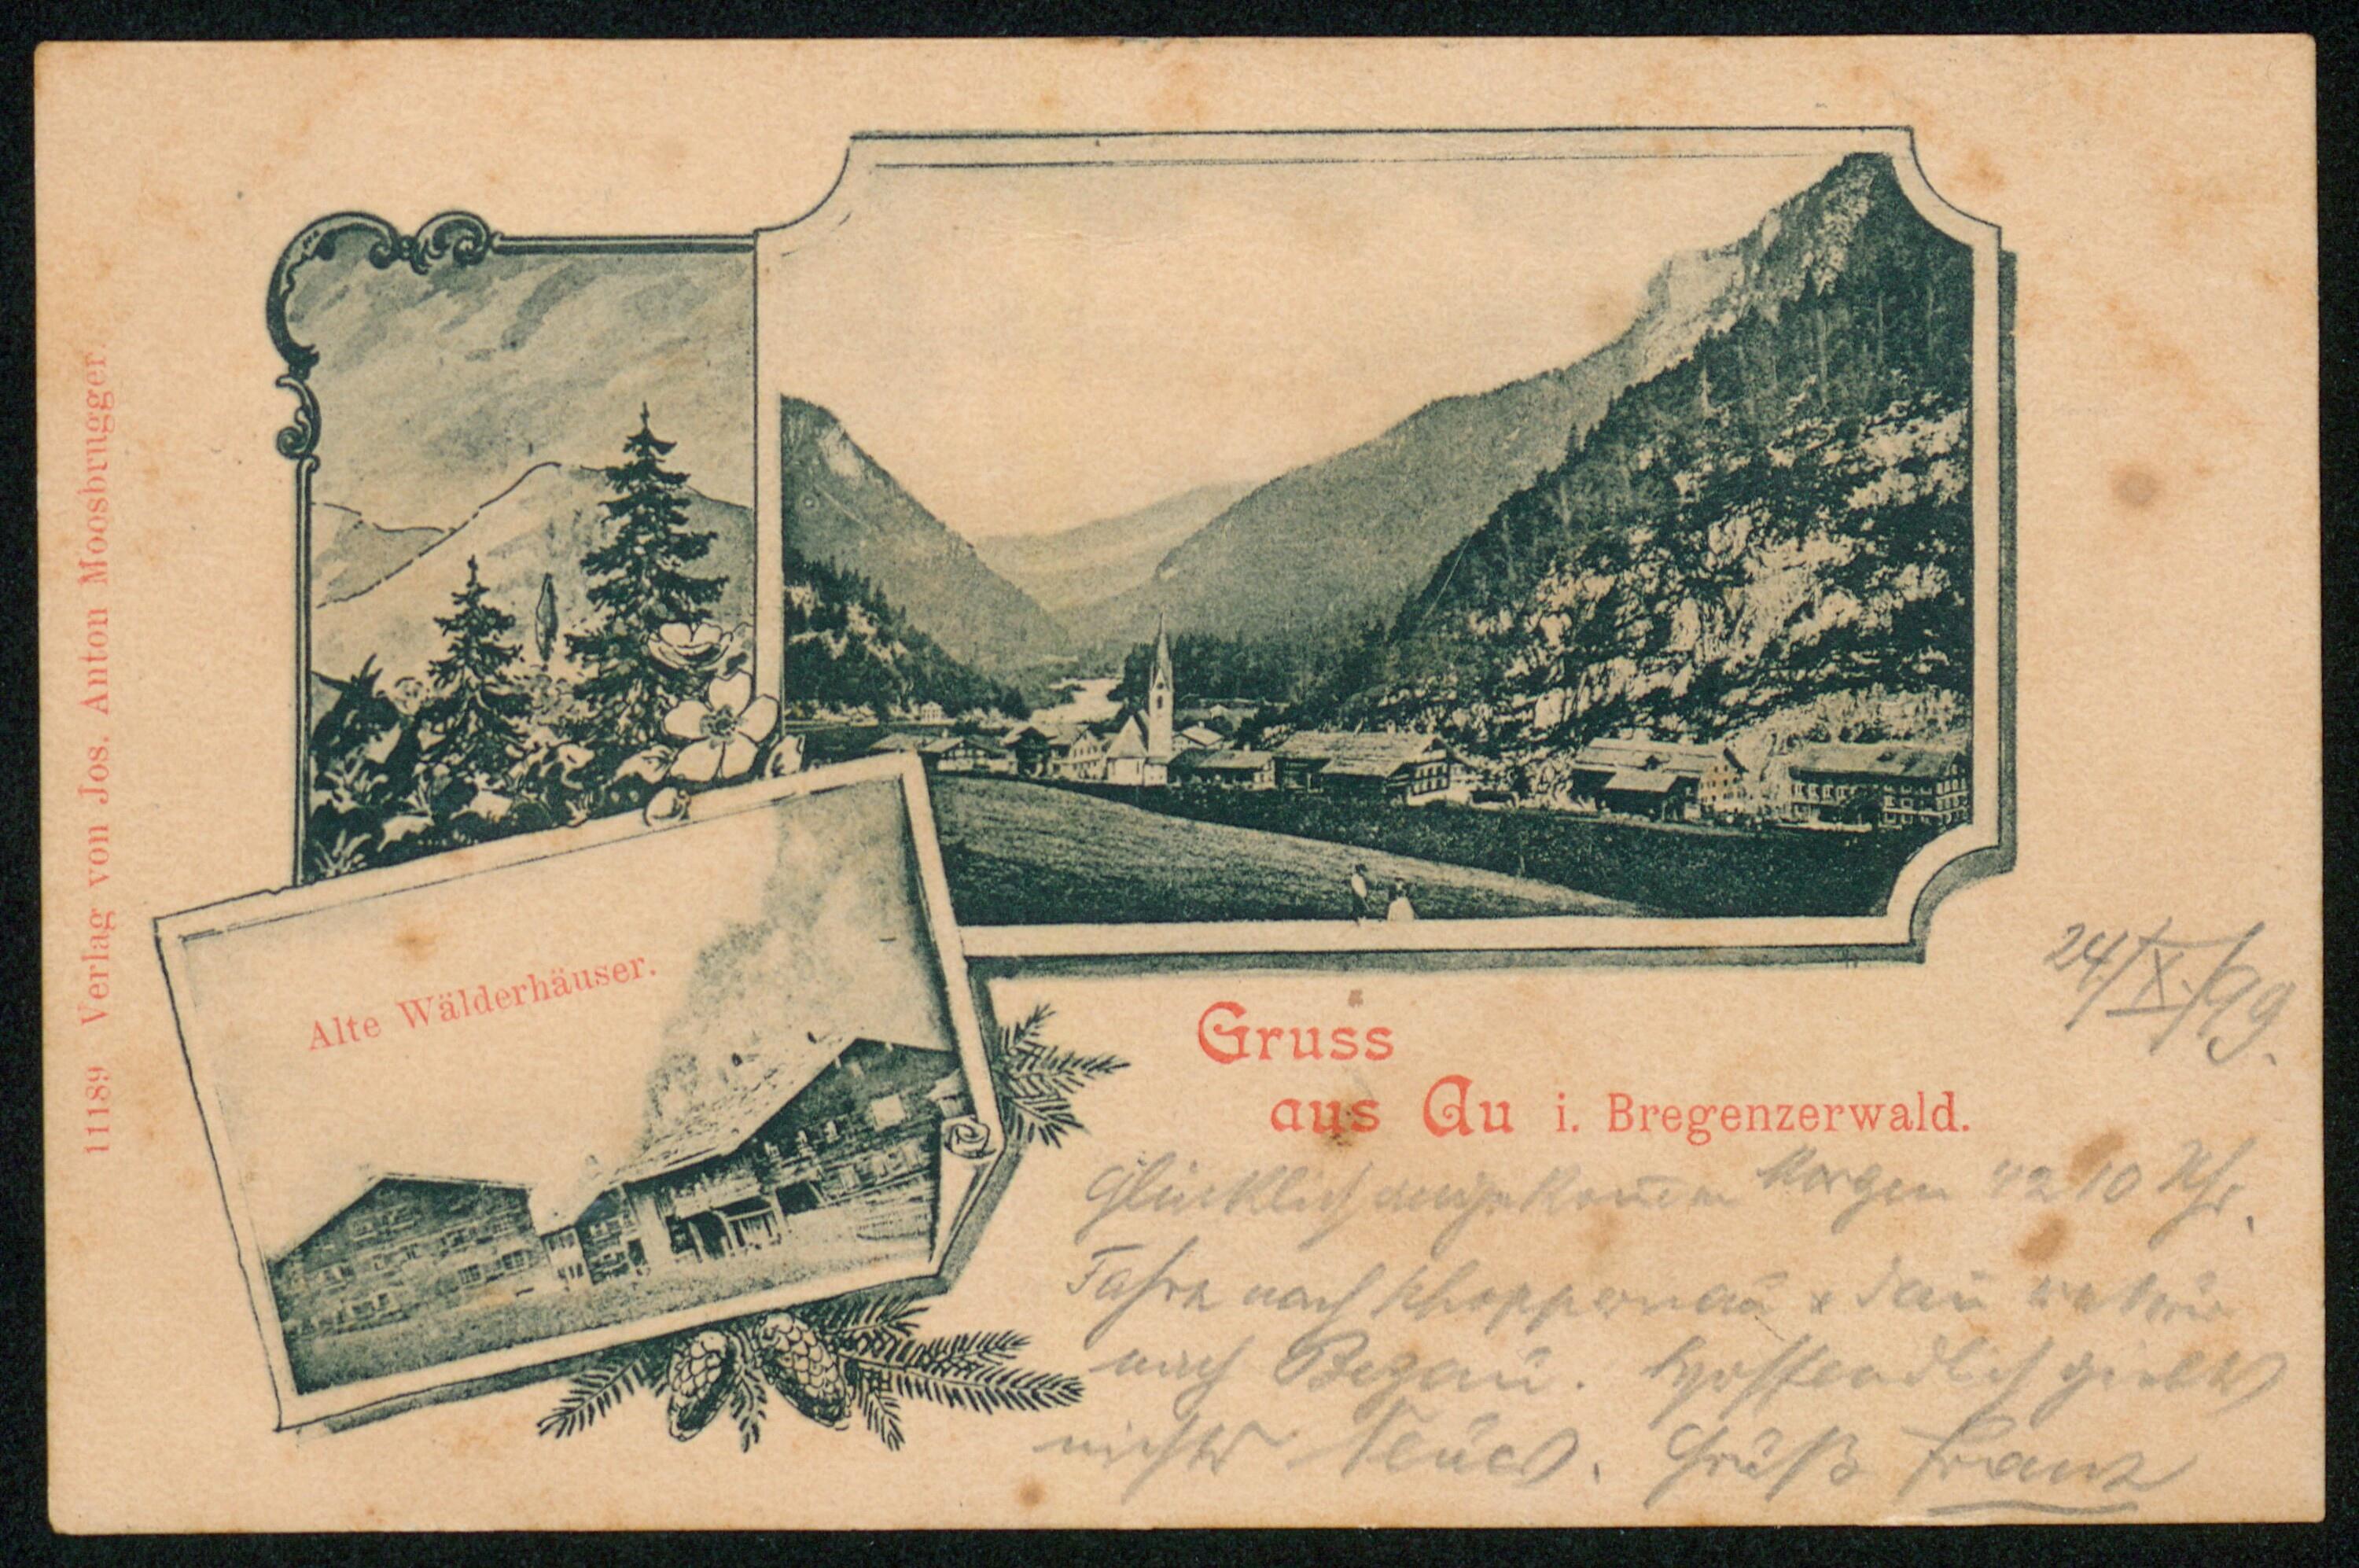 11189 Verlag von Jos. Anton Moosbrugger.
Alte Wälderhäuser.
Gruss
aus Au i. Bregenzerwald.
24./X./99.
Glücklich angekommen Morgen 10 Uhr.
Fahre nach Schoppernau & dann
nach Bezau. Hoffentlich giebts
nichts Neues. Gruß Franz